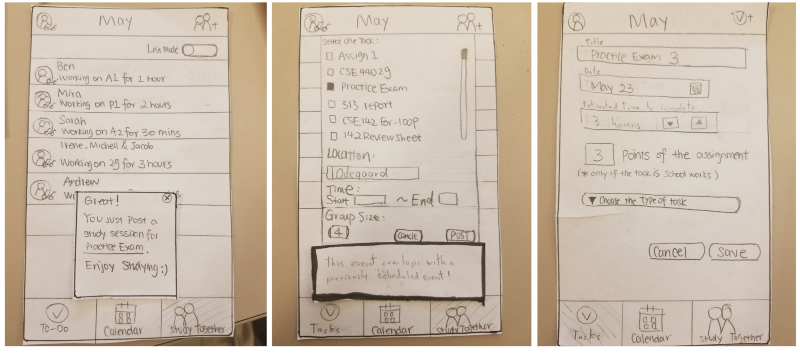 May
List Mode
Ben
Working on A1 for 1 hour
Mira
Working on P1 for 2 hours
Sarah
Working on A2 for 30 mins
Irene, Michell & Jacob
Working on 29 for 3 hours
Andrew
Great!
You Just Post a
study session for
Practice Exam.
Enjoy Studying :)
To-Do
Calendar
Study Together
May
+
Select One Task:
Assign 2
CSE 440 29
Practice Exam
313 report
CSE142 for-loop
142 Review sheet
Location:
Odegaard
Time:
Start
~ End
Group Size:
4
Cancle
POST
This event overlaps with a
previously scheduled event!
Tasks
Calendar
Study Together
May
+
Title
Practice Exam 3
Date
May 23
Estimated Time to complete
3 hours
3 Points of the assignment
(* only if the task is school works)
▼ Choose the Type of task
Cancel
Save
Tasks
Calendar
Study Together